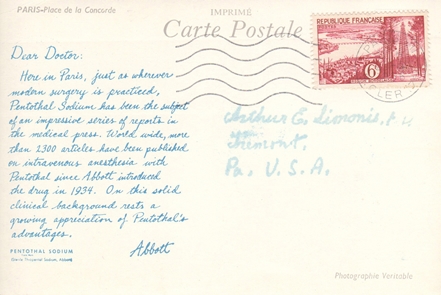 PARIS•Place de la Concorde
IMPRIMÉ
Carte Postale
REPUBLIQUE FRANÇAISE
POSTES
6F
Dear Doctor:
Here in Paris, just as wherever
modern surgery is practiced,
Pentothal Sodium has been the subject
of an impressive series of reports in
the medical press. World wide, more
than 2300 articles have been published
on intravenous anesthesia with
Pentothal since Abbott introduced
the drug in 1934. On this solid
clinical background rests a
growing appreciation of Pentothal's
advantages.
Abbott
Arthur E.
Tremont,
Pa. U.S.A.
PENTOTHAL SODIUM
Sodium, Abbott)
Photographie Véritable